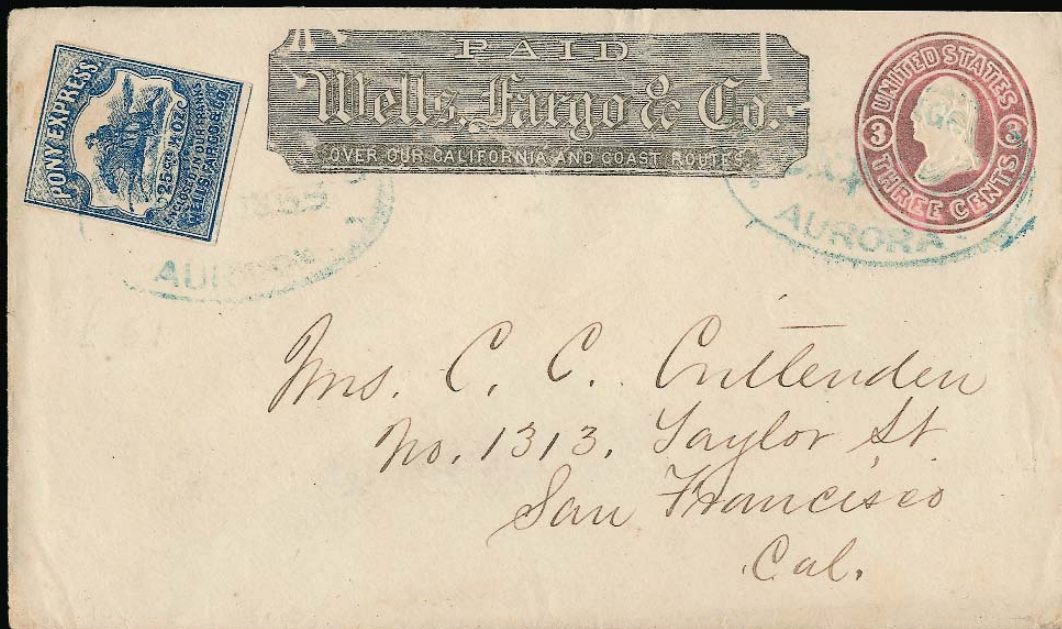 PONY EXPRESS
25 cts ½ OZ.
ENCLOSED IN OUR FRANKS
WELLS FARGO & CO.
PAID
Wells, Fargo & Co.
OVER OUR CALIFORNIA AND COAST ROUTES.
UNITED STATES
3 3
THREE CENTS
AURORA
Mrs. C. C. Crittenden
No. 1313. Taylor St
San Francisco
Cal.